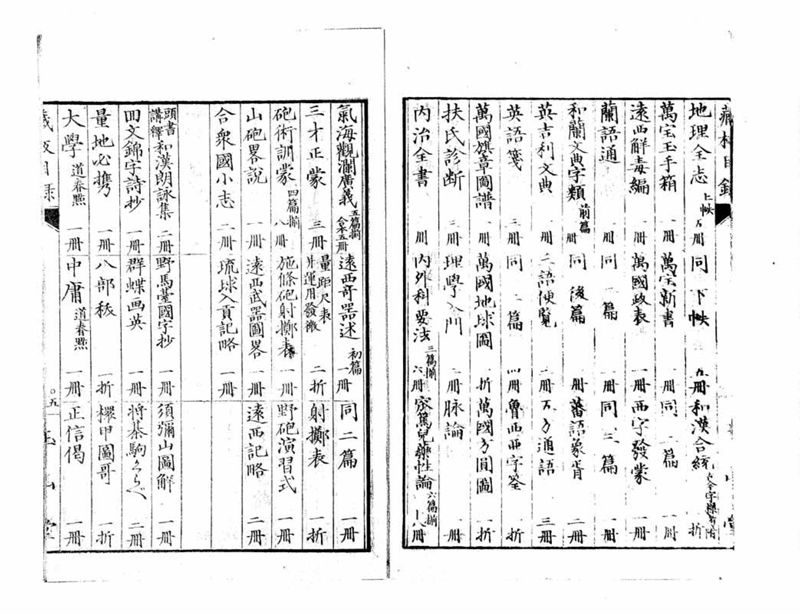 地理全志 上帙 冊 同 下帙 冊 和漢合統 折
萬宝玉手箱 冊 萬宝新書 冊 同 篇 冊
遠西解毒編 冊 萬國政表 冊 西字發蒙 冊
蘭語通 冊 同 篇 冊 同 三篇 冊
和蘭文典字類 前篇 冊 同 後篇 冊 蕃語象胥 二冊
英吉利文典 冊 三語便覧 冊 五方通語 三冊
英語箋 冊 同 篇 冊 魯西亜字筌 折
萬國旗章圖譜 冊 萬國地球圖 折 萬國方圓圖 折
扶氏診断 冊 理學入門 冊 脉論 二冊
内治全書 冊 内外科要法 三篇揃 冊 窊篤兒藥性論 六篇揃 冊
氣海觀瀾廣義 五篇揃 合本五冊 遠西奇器述 初篇 一冊 同 二篇 一冊
三才正蒙 三冊 量距尺表 并運用發微 二折 射擲表 一折
砲術訓蒙 四篇揃 八冊 施條砲射擲表 一冊 野砲演習式 一冊
山砲畧説 一冊 遠西武器圖畧 一冊 遠西記略 二冊
合衆國小志 一冊 琉球入貢記略 一冊
頭書講釋 和漢朗詠集 二冊 野馬臺國字抄 一冊 須彌山圖解 一冊
回文錦字詩抄 一冊 群蝶画英 一冊 将棊駒くらべ 二冊
量地必携 一冊 八部秡 一折 櫻甲圖哥 一折
大學 道春點 一冊 中庸 道春點 一冊 正信偈 一冊
目録 五 山堂